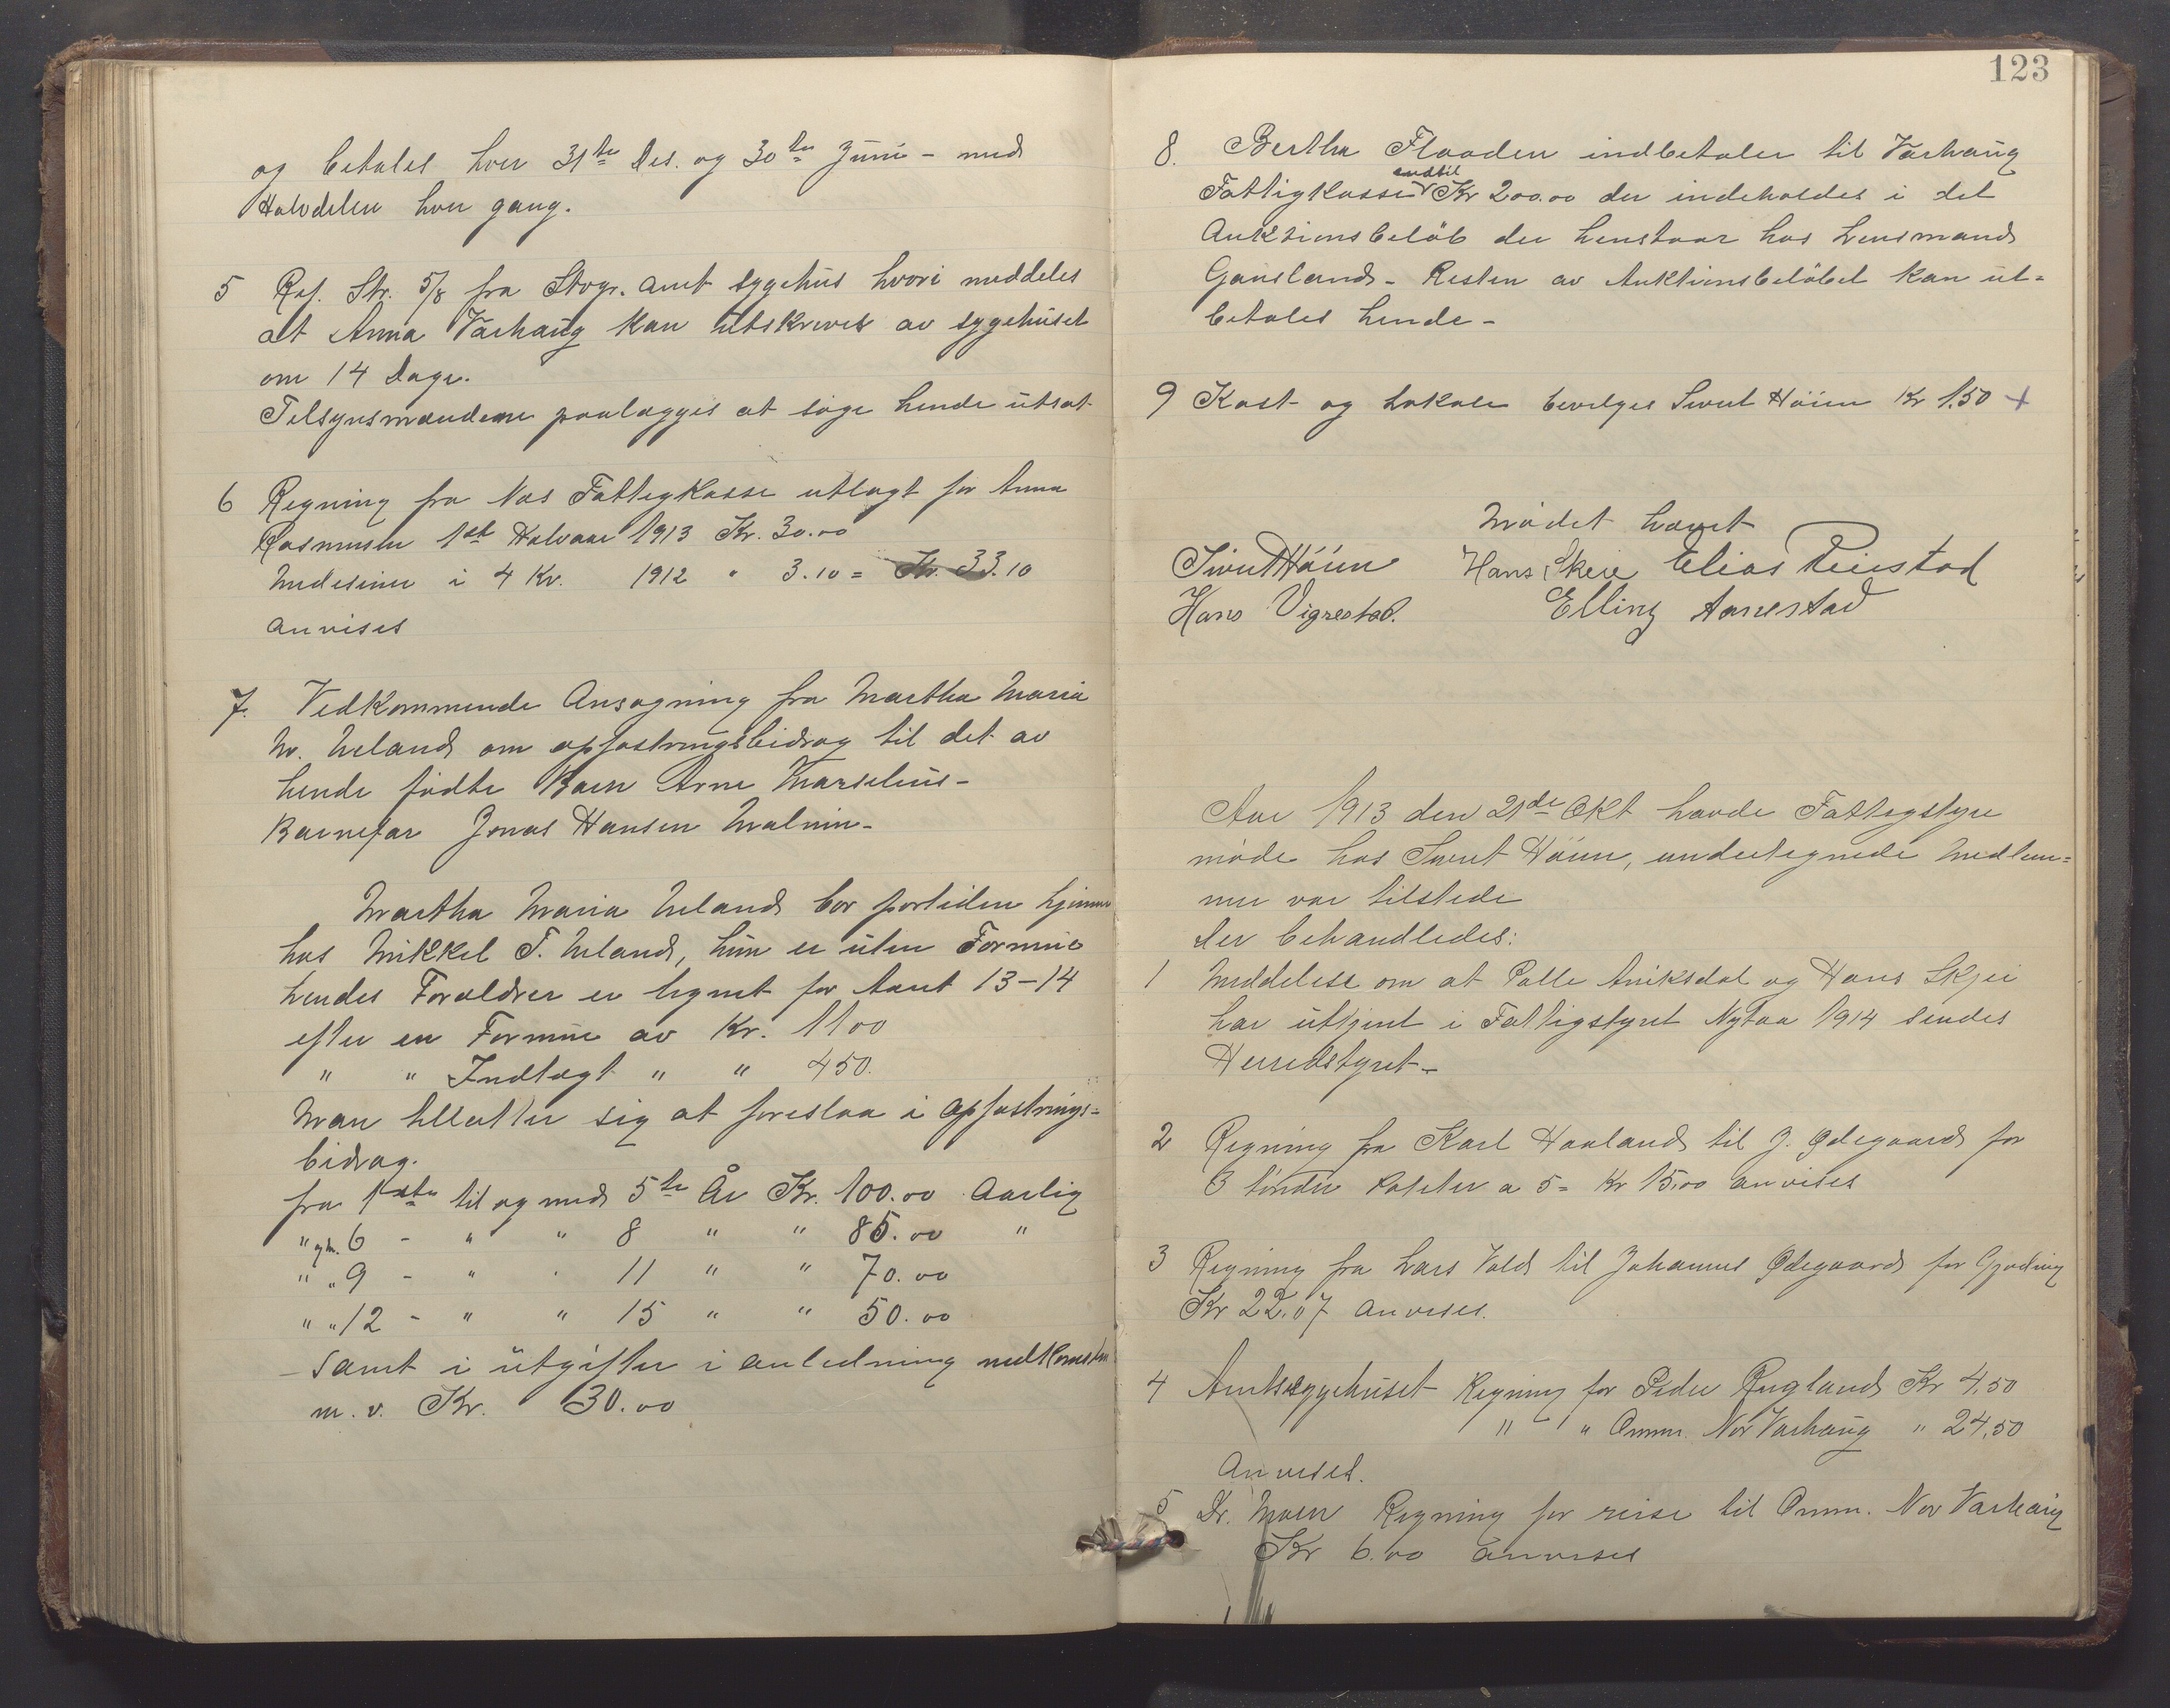 og betales hver 31te Des. og 30te Juni - med
Halvdelen hver gang.
5 Ref. Skr. 5/8 fra Stvgr. amt sygehus hvori meddeles
at Anna Varhaug kan utskrives av sygehuset
om 14 Dage.
Tilsynsmændene paalægges at søge hende utsat
6 Regning fra Næs Fattigkasse utlagt for Anna
Rasmusen 1ste Halvaar 1913 Kr. 30.00
Medesiner i 4 Kv. 1912 " 3.10 = Kr. 33.10
anvises
7. Vedkommende Ansøgning fra Martha Maria
M. Ueland om opfostringsbidrag til det av
hende fødte Barn Arne Marselius-
Barnefar Jonas Hansen Malmin-
Martha Maria Ueland bor fortiden hjemme
hos Mikkel T. Ueland, hun er uten Formue
hendes Forældrer er lignet for Aaret 13-14
efter en Formue av Kr. 1100
" " Indtægt " " 450.
Man tillater sig at foreslaa i Opfostrings=
bidrag.
fra 1ste til og med 5te År Kr. 100.00 Aarlig
" gm. 6 - " " 8 " " 85.00 "
" " 9 - " " 11 " " 70.00
" " 12 - " " 15 " " 50.00
- samt i utgifter i anledning nedkomsten
m.v. Kr. 30.00
123
8. Bertha Flaaden indbetaler til Varhaug
indtil
Fattigkasse Kr 200.00 der indeholdes i det
Auksionsbeløb der henstaar hos Lensmand
Gausland - Resten av Auktionsbeløbet kan ut=
betales hende -
9 Kost- og Lokale bevilges Sivert Höien Kr 1.50 +
Mødet hævet
Sivert Höien Hans Skeie Elias Reiestad
Hans Vigrestad. Elling Aanestad
Aar 1913 den 21de Okt havde Fattigstyre
møde hos Sivert Höien, undertegnede Medlem=
mer var tilstede
der behandledes:
1 Meddelese om at Palle Aniksdal og Hans Skjei
har uttjent i Fattigstyret Nytaa 1914 sendes
Herredstyret -
2 Regning fra Karl Haaland til J. Ødegaard for
3 tönder Poteter a 5 = Kr 15.00 anvises
3 Regning fra Lars Vold til Johannes Ødegaard for Gjødning
Kr 22.07 anvises.
4 Amtssygehuset Regning for Peder Rugland Kr 4,50
" " Omm. Nor Varhaug " 24,50
Anvises.
5 Dr. Moen Regning for reise til Omm. Nor Varhaug
Kr 6.00 anvises